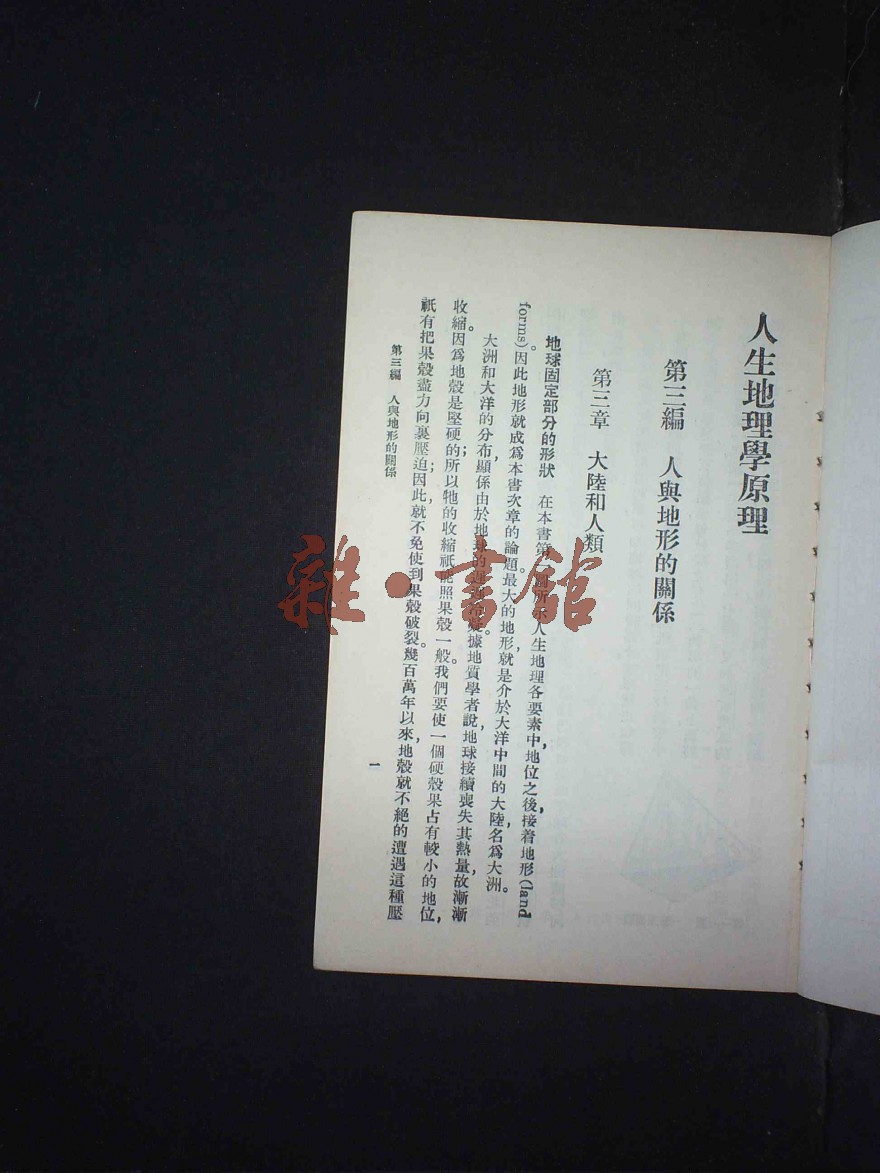 人生地理學原理
第三編 人與地形的關係
第三章 大陸和人類
地球固定部分的形狀 在本書第一圖所示人生地理各要素中,地位之後,接着地形(land
forms)。因此地形就成爲本書次章的論題。最大的地形,就是介於大洋中間的大陸,名爲大洲。
大洲和大洋的分布,顯係由於地球的 據地質學者說,地球接續喪失其熱量,故漸漸
收縮。因爲地殼是堅硬的;所以牠的收縮祇能照果殼一般。我們要使一個硬殼果占有較小的地位,
祇有把果殼盡力向裏壓迫;因此,就不免使到果殼破裂。幾百萬年以來,地殼就不絕的遭遇這種壓
第三編 人與地形的關係
一
雜·書館